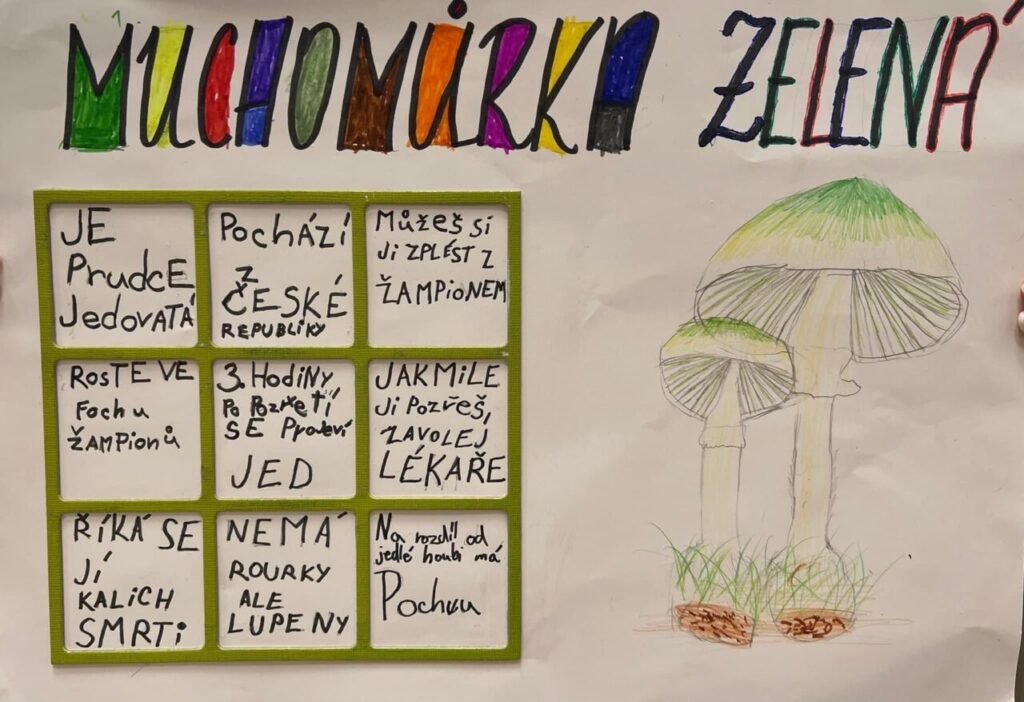 MUCHOMŮRKA ZELENÁ
JE
PrudcE
JedovATÁ
PochÁZÍ
Z
ČESKÉ
REPUBLIKY
Můžeš Si
Ji ZPLÉST Z
ŽAMPiONEM
RosTE VE
Fochu
ŽAMPionů
3. HodiNY
Po Pozřetí
SE Projeví
JED
JAKMiLE
Ji Pozřeš,
ZAVOLEJ
LÉKAŘE
ŘÍKÁ SE
JÍ
KALiCH
SMRTi
NEMÁ
ROURKY
ALE
LUPENY
Na rozdíl od
jedlé houbi má
Pochvu